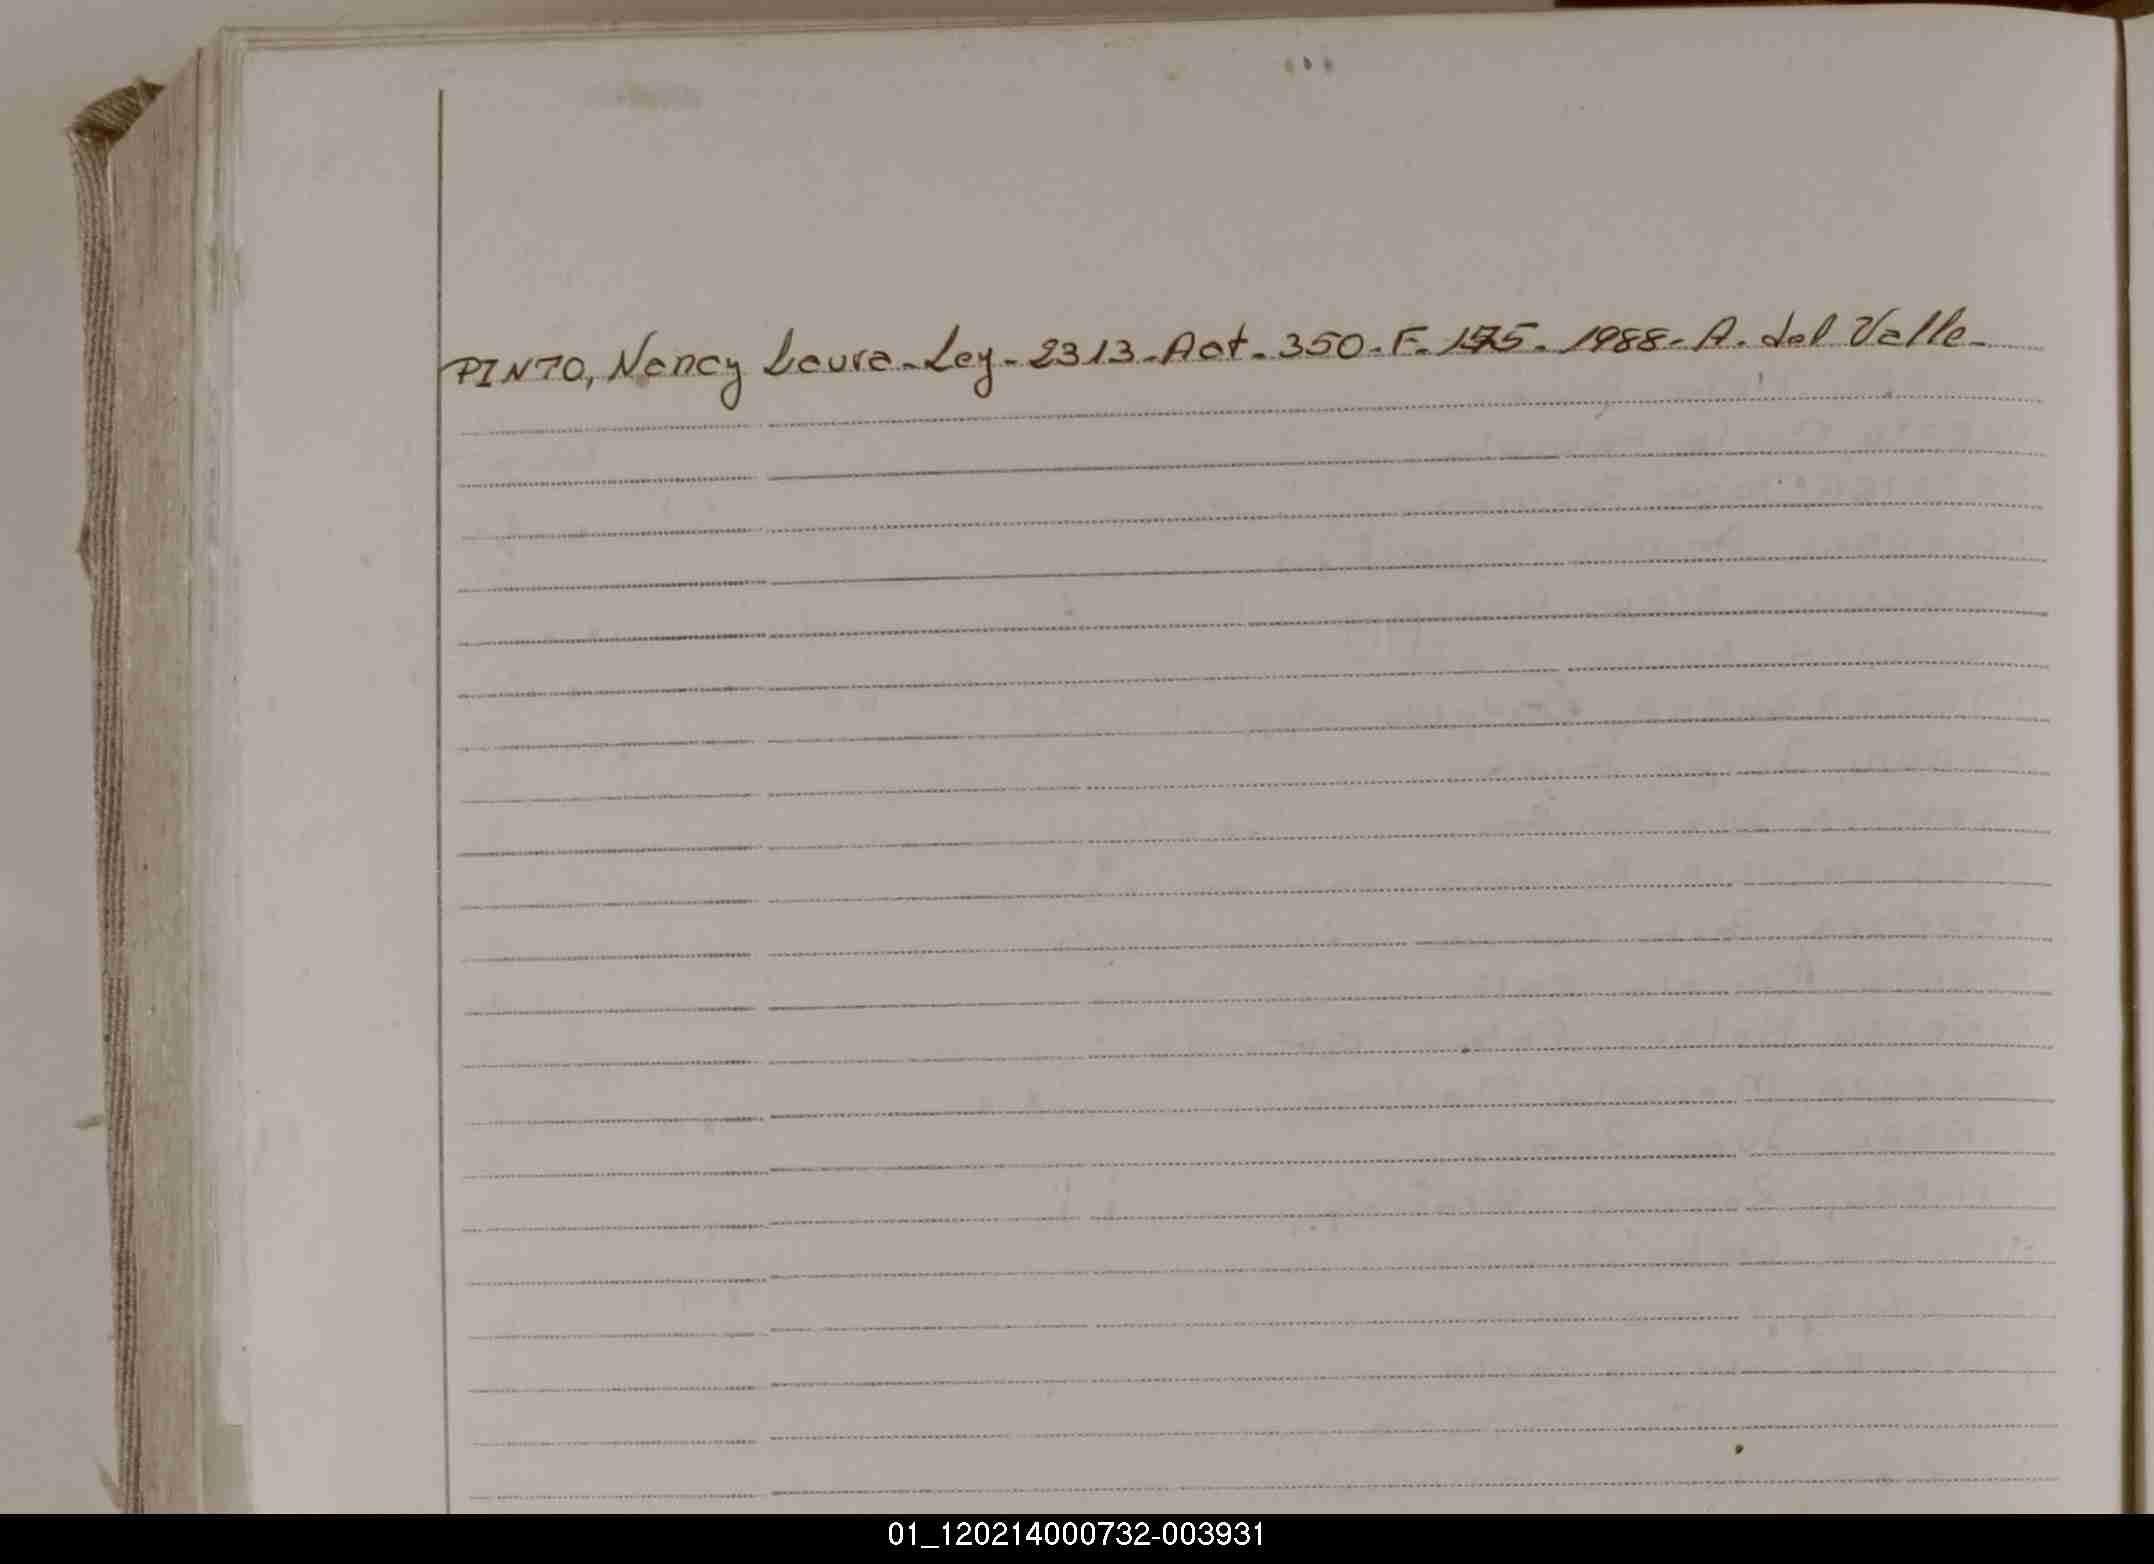 PINTO, Nancy Laura - Ley - 2313 - Act. 350 - F. 175 - 1988 - A. del Valle -
01_120214000732-003931